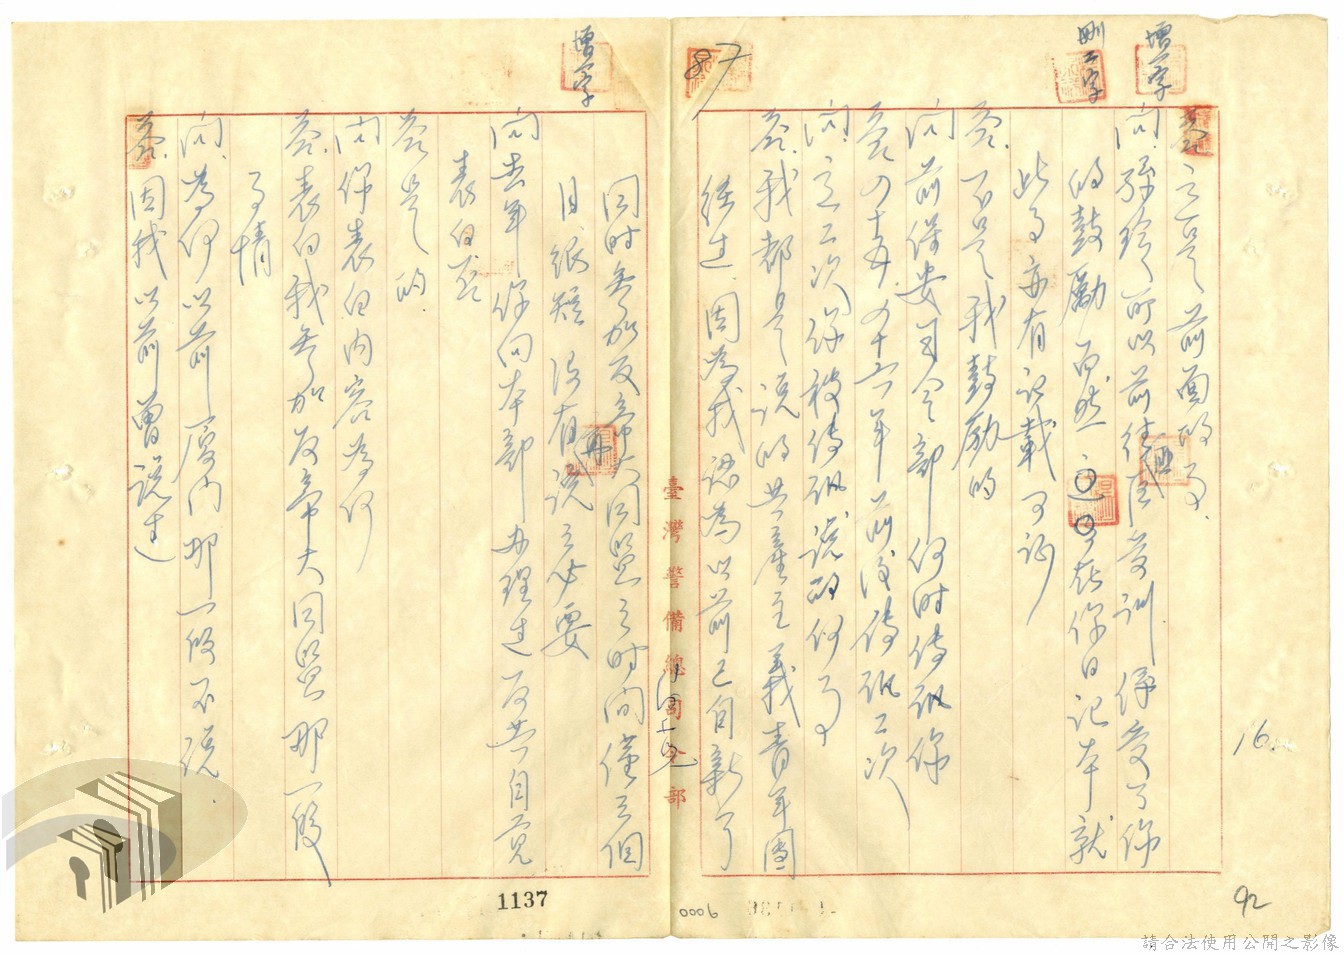 增一字
刪二字
增一字
87
答 這是前面的事.
問 所以前往匪區受訓 係受了你
的鼓勵 而然 在你日記本就
此事亦有記載可証
答. 不是我鼓勵的
問 前保安司令部 何時傳訊你
答 四十五年四十六年前後傳訊二次
問 這二次你被傳訊說的何事
答. 我都是說的共產主義青年團
經過 因為我認為以前已自新了
同時參加反帝大同盟之時間僅三個
月很短 沒有再說之必要
問 去年你向本部办理過反共自覺
表白否
答 是的
問 你表白內容為何
答. 表白我參加反帝大同盟那一段
事情
問. 為何以前廈门那一段不說.
答. 因我以前曾說過
臺灣警備總司令部
1137
0006
16.
92
請合法使用公開之影像